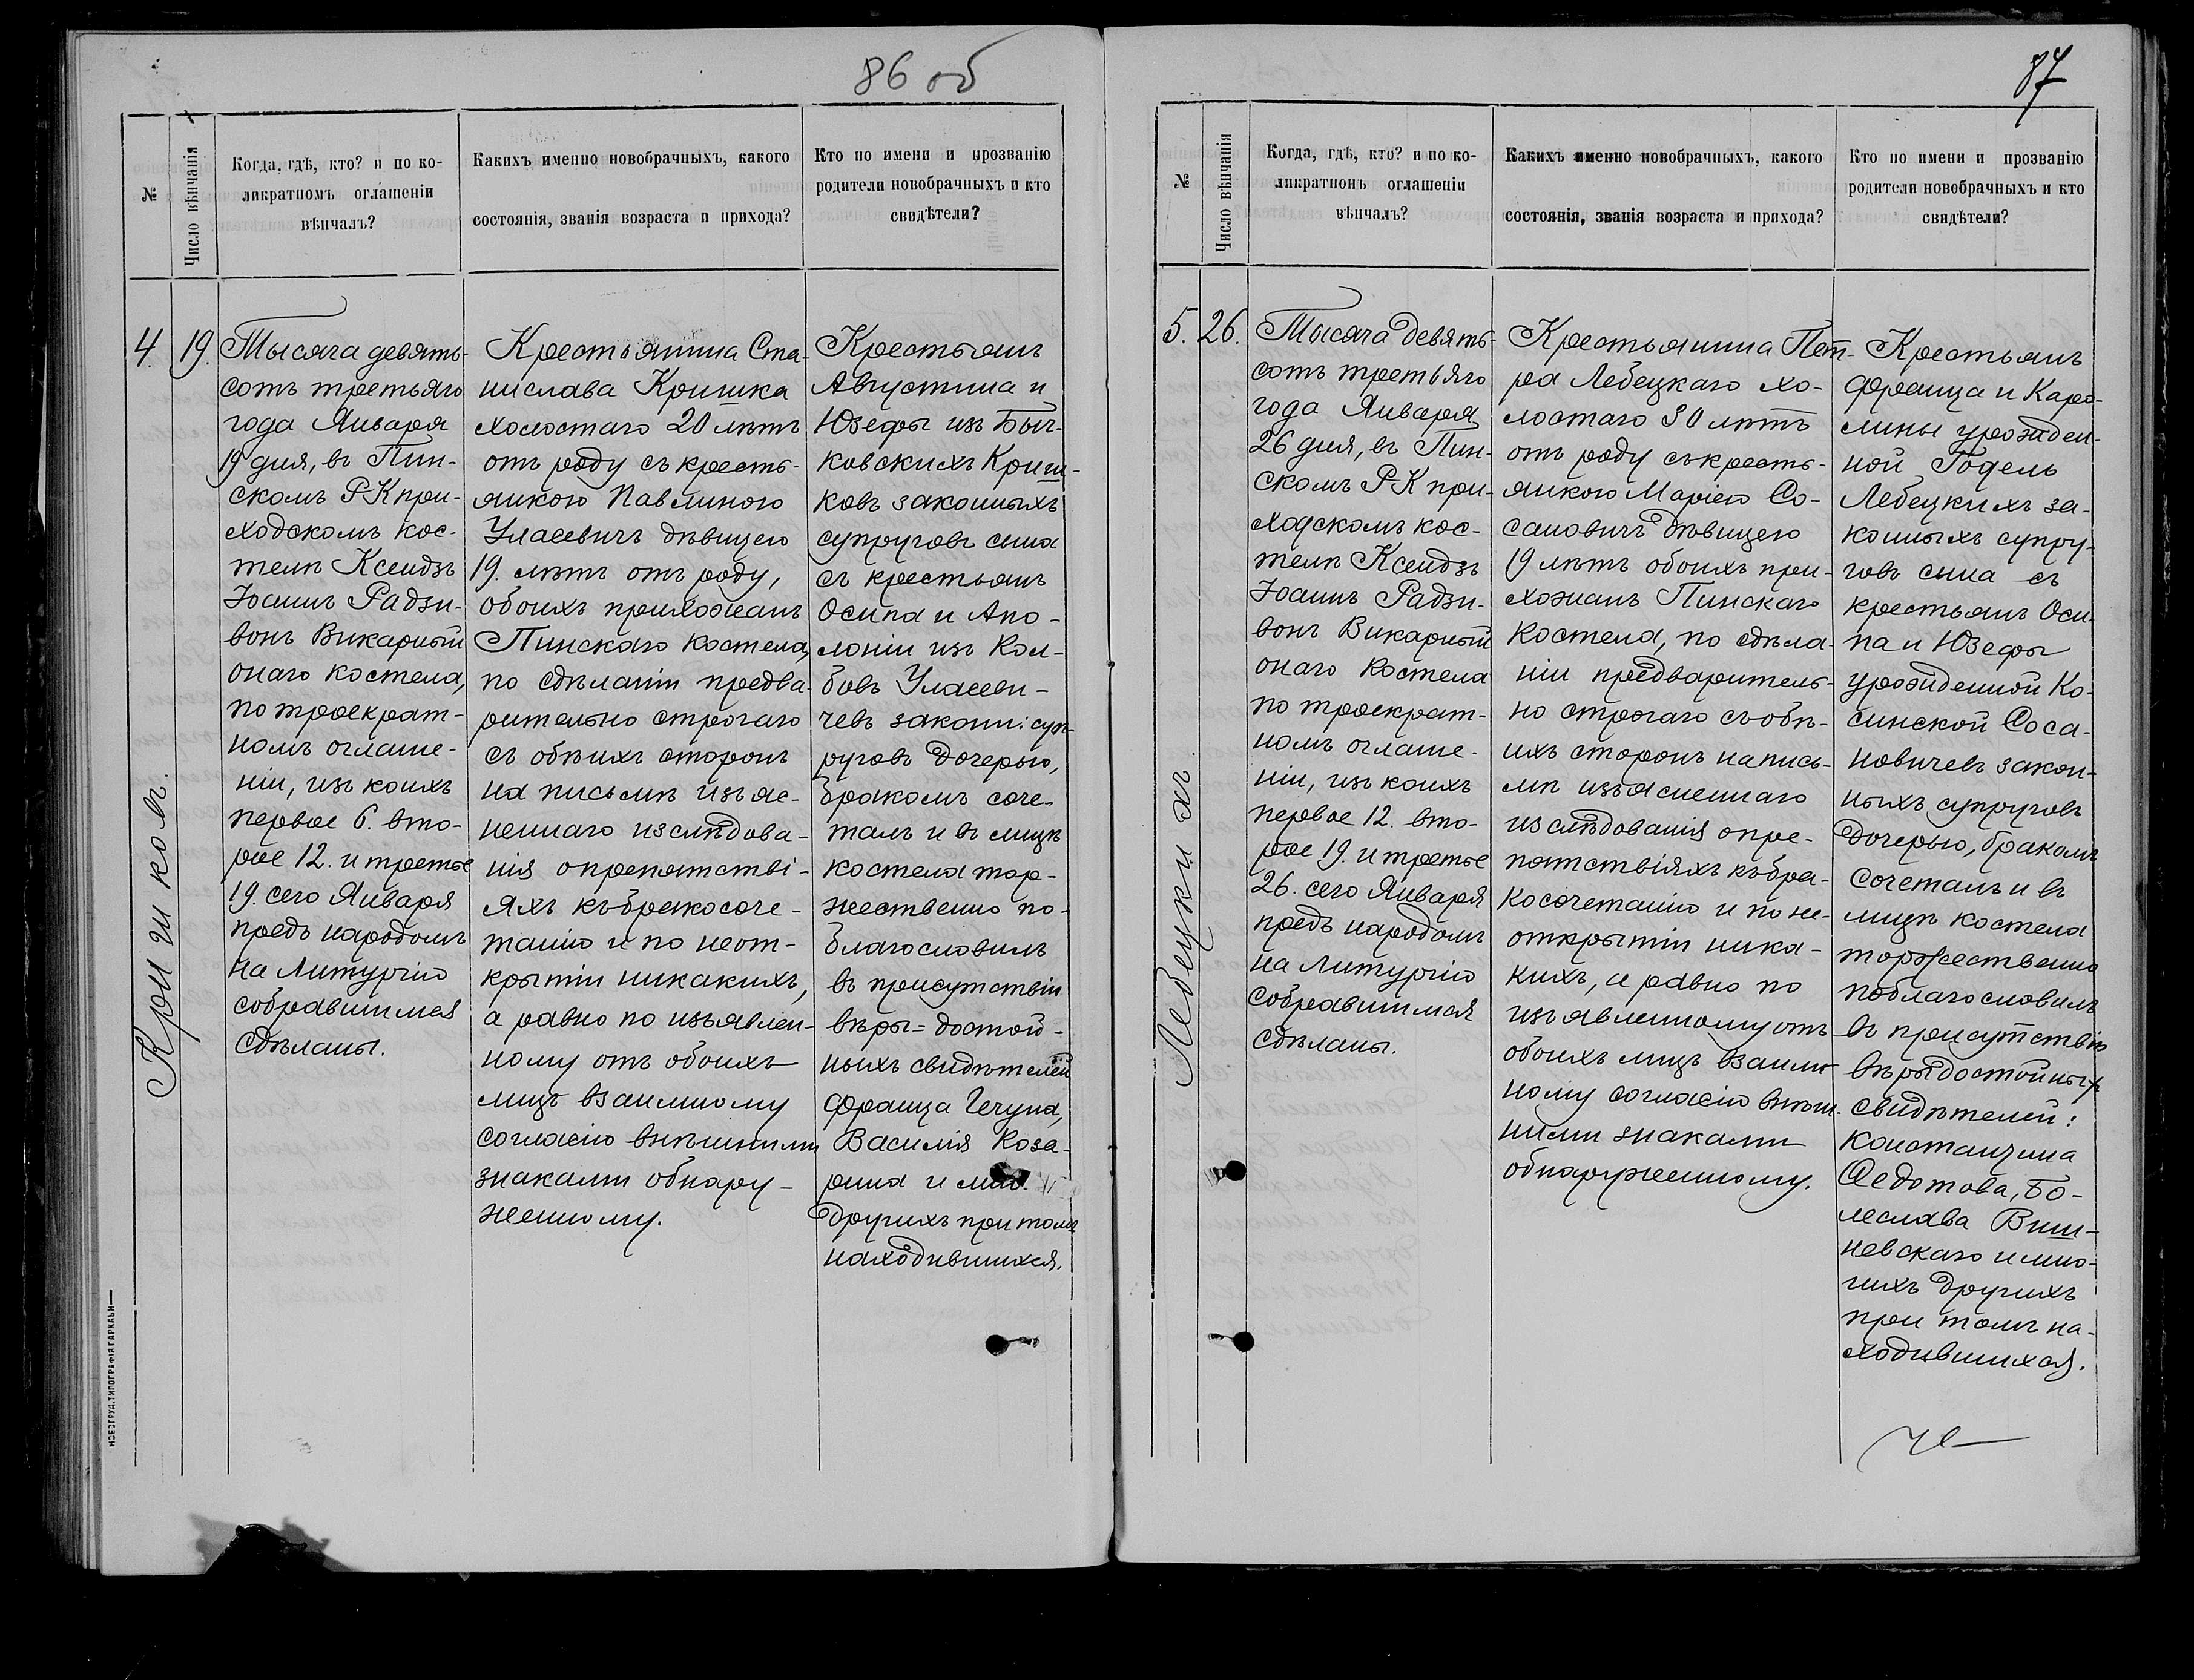 86 об
№
Число вѣнчанія
Когда, гдѣ, кто? и по ко-
ликратномъ оглашеніи
вѣнчалъ?
Какихъ именно новобрачныхъ, какого
состоянія, званія возраста и прихода?
Кто по имени и прозванію
родители новобрачныхъ и кто
свидѣтели?
Кришковъ.
4.
19.
Тысяча девять-
сотъ третьяго
года Января
19 дня, въ Пин-
скомъ Р К при-
ходскомъ кос-
телѣ Ксендзъ
Іоаннъ Радзи-
вонъ Викарный
онаго костела,
по троекрат-
номъ оглаше-
ніи, изъ коихъ
первое 6. вто-
рое 12. и третье
19. сего Января
предъ народомъ
на Литургію
собравшимся
сдѣланы.
Крестьянина Ста-
нислава Кришка
холостаго 20 лѣтъ
отъ роду съ кресть-
янкою Павлиною
Уласевичъ дѣвицею
19. лѣтъ отъ роду,
обоихъ прихожанъ
Пинскаго костела,
по сдѣланіи предва-
рительно строгаго
съ обѣихъ сторонъ
на письмѣ изъяс-
неннаго изслѣдова-
нія о препятстві-
яхъ къ бракосоче-
танію и по неот-
крытіи никакихъ,
а равно по изъявлен-
ному отъ обоихъ
лицъ взаимному
согласію внѣшними
знаками обнару-
женному.
Крестьянъ
Августина и
Юзефы изъ Быч-
ковскихъ Криш-
ковъ законныхъ
супруговъ сына
съ крестьянъ
Осипа и Апо-
лоніи изъ Кол-
бовъ Уласеви-
чевъ законн: суп-
руговъ дочерью,
бракомъ соче-
талъ и въ лицѣ
костела тор-
жественно по-
благословилъ
въ присутствіи
вѣры=достой-
ныхъ свидѣтелей
Франца Чечуна,
Василія Коза-
рина и мно.
другихъ при томъ
находившихся.
НОВОГРУД. ТИПОГРАФІЯ ГАРКАВИ
87
№
Число вѣнчанія
Когда, гдѣ, кто? и по ко-
ликратномъ оглашеніи
вѣнчалъ?
Какихъ именно новобрачныхъ, какого
состоянія, званія возраста и прихода?
Кто по имени и прозванію
родители новобрачныхъ и кто
свидѣтели?
Лебецкихъ.
5.
26.
Тысяча девять-
сотъ третьяго
года Января
26 дня, въ Пин-
скомъ Р К при-
ходскомъ кос-
телѣ Ксендзъ
Іоаннъ Радзи-
вонъ Викарный
онаго костела
по троекрат-
номъ оглаше-
ніи, изъ коихъ
первое 12. вто-
рое 19. и третье
26. сего Января
предъ народомъ
на Литургію
собравшимся
сдѣланы.
Крестьянина Пет-
ра Лебецкаго хо-
лостаго 30 лѣтъ
отъ роду съ кресть-
янкою Маріею Со-
сановичъ дѣвицею
19 лѣтъ обоихъ при-
хожанъ Пинскаго
костела, по сдѣла-
ніи предваритель-
но строгаго съ обѣ-
ихъ сторонъ на пись-
мѣ изъясненнаго
изслѣдованія о пре-
пятствіяхъ къ бра-
косочетанію и по не-
открытіи ника-
кихъ, а равно по
изъявленному отъ
обоихъ лицъ взаим-
ному согласію внѣш-
ними знаками
обнаруженному.
Крестьянъ
Франца и Каро-
лины урожден-
ной Годель
Лебецкихъ за-
конныхъ супру-
говъ сына съ
крестьянъ Оси-
па и Юзефы
урожденной Ко-
синской Соса-
новичевъ закон-
ныхъ супруговъ
дочерью, бракомъ
сочеталъ и въ
лицѣ костела
торжественно
поблагословилъ
въ присутствіи
вѣрыдостойныхъ
свидѣтелей:
Константина
Федотова, Бо-
леслава Виш-
невскаго и мно-
гихъ другихъ
при томъ на-
ходившихся.